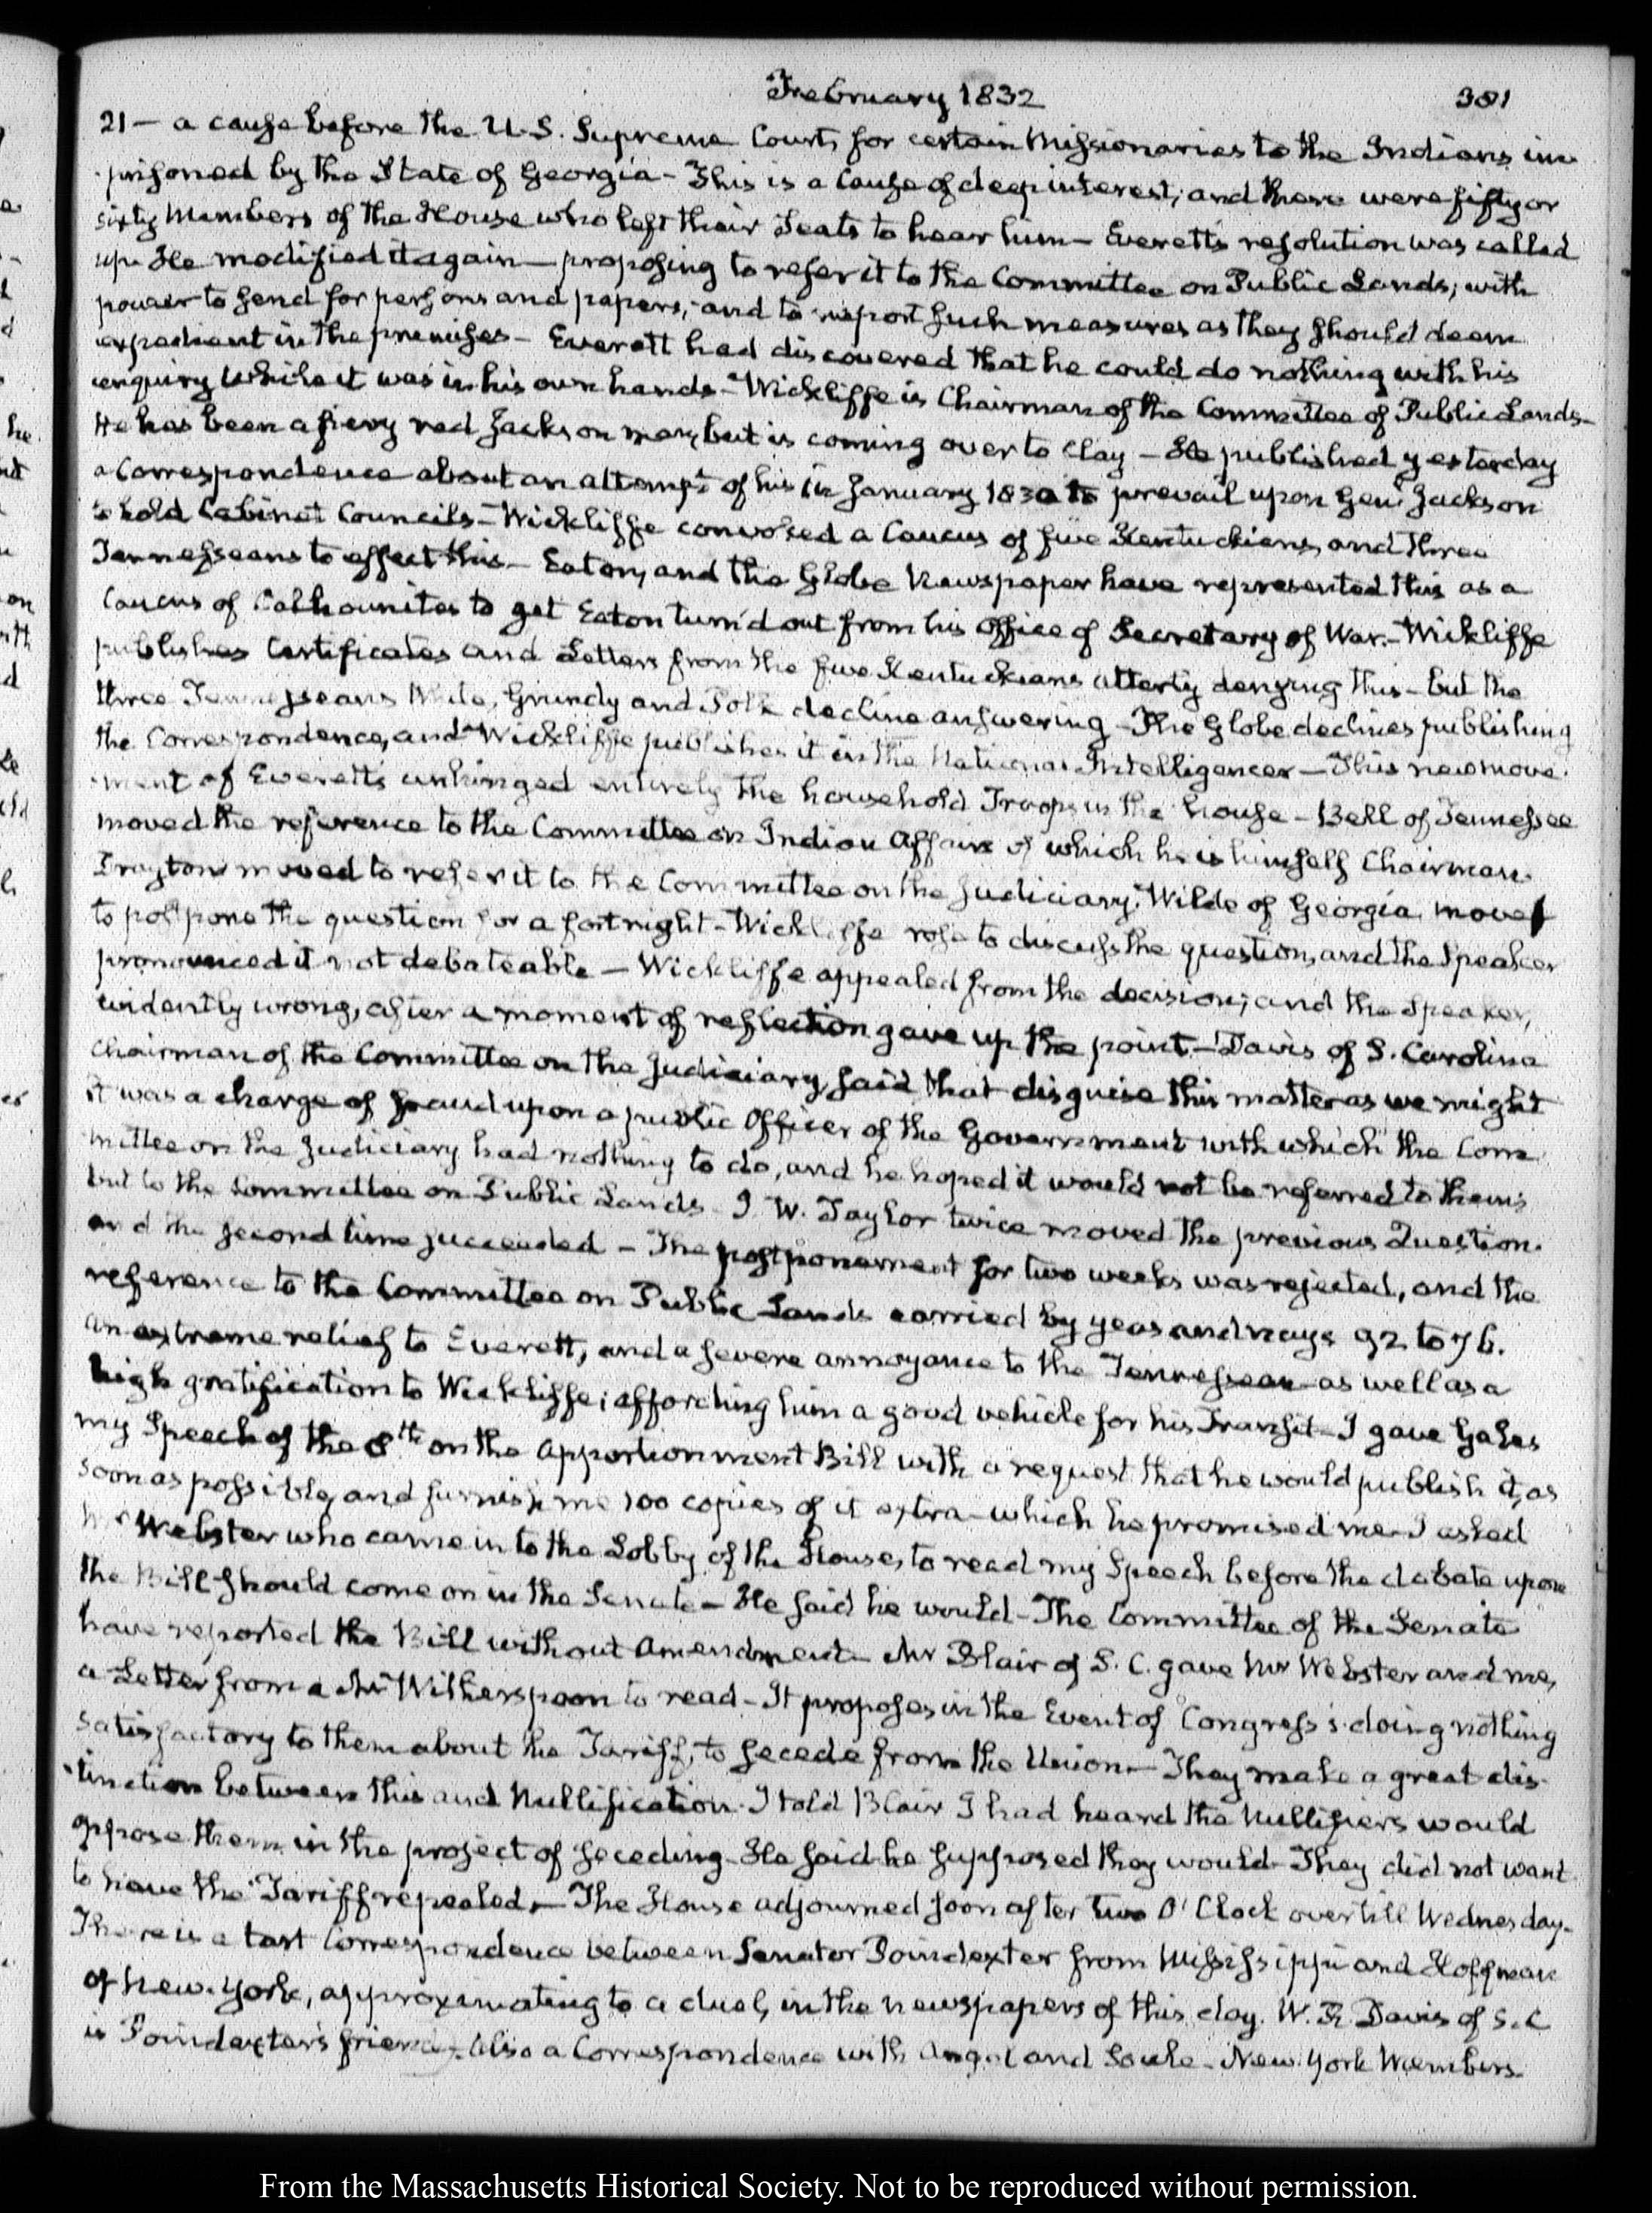 February 1832
381
21 — a cause before the U.S. Supreme Court, for certain Missionaries to the Indians im-
-prisoned by the State of Georgia — This is a Cause of deep interest, and there were fifty or
sixty Members of the House who left their Seats to hear him — Everett's resolution was called
up. He modified it again — proposing to refer it to the Committee on Public Lands; with
power to send for persons and papers; and to report such measures as they should deem
expedient in the premises — Everett had discovered that he could do nothing with his
enquiry while it was in his own hands — Wickliffe is Chairman of the Committee of Public Lands —
He has been a fiery red Jackson man, but is coming over to Clay — He published yesterday
a Correspondence about an attempt of his in January 1830 to prevail upon Genl. Jackson
to hold Cabinet Councils — Wickliffe convoked a Caucus of five Kentuckians, and three
Tennesseans to effect this — Eaton, and the Globe Newspaper have represented this as a
Caucus of Calhounites to get Eaton turn'd out from his Office of Secretary of War. — Wickliffe
publishes Certificates and Letters from the five Kentuckians utterly denying this — but the
three Tennesseans White, Grundy and Polk decline answering — The Globe declines publishing
the Correspondence, and Wickliffe publishes it in the National Intelligencer — This new move-
-ment of Everett's unhinged entirely the household Troops in the House — Bell of Tennessee
moved the reference to the Committee on Indian Affairs of which he is himself Chairman.
Drayton moved to refer it to the Committee on the Judiciary. Wilde of Georgia moved
to postpone the question for a fortnight — Wickliffe rose to discuss the question, and the Speaker
pronounced it not debateable — Wickliffe appealed from the decision; and the Speaker,
evidently wrong, after a moment of reflection gave up the point — Davis of S. Carolina
Chairman of the Committee on the Judiciary, said that disguise this matter as we might
it was a charge of fraud upon a public Officer of the Government with which the Com-
mittee on the Judiciary had nothing to do, and he hoped it would not be referred to them;
but to the Committee on Public Lands — J. W. Taylor twice moved the previous Question.
and the second time succeeded — The postponement for two weeks was rejected, and the
reference to the Committee on Public Lands carried by yeas and nays 92 to 76.
an extreme relief to Everett, and a severe annoyance to the Tennessean as well as a
high gratification to Wickliffe; affording him a good vehicle for his Transit — I gave Gales
my Speech of the 8th on the Apportionment Bill with a request that he would publish it, as
soon as possible, and furnish me 100 copies of it extra — which he promised me — I asked
Mr Webster who came in to the Lobby of the House, to read my Speech before the debate upon
the Bill should come on in the Senate — He said he would — The Committee of the Senate
have reported the Bill without Amendment — Mr Blair of S. C. gave Mr Webster and me,
a Letter from a Mr Witherspoon to read — It proposes in the Event of Congress's doing nothing
satisfactory to them about the Tariff, to secede from the Union — They make a great dis-
-tinction between this and Nullification. I told Blair I had heard the Nullifiers would
oppose them in the project of seceding — He said he supposed they would — They did not want
to have the Tariff repealed, — The House adjourned soon after two O'Clock over till Wednesday.
There is a tart Correspondence between Senator Poindexter from Mississippi and Hoffman
of New-York, approximating to a duel, in the newspapers of this day. W. R. Davis of S. C
is Poindexter's friend — Also a Correspondence with Angel and Soule — New-York Members.
From the Massachusetts Historical Society. Not to be reproduced without permission.